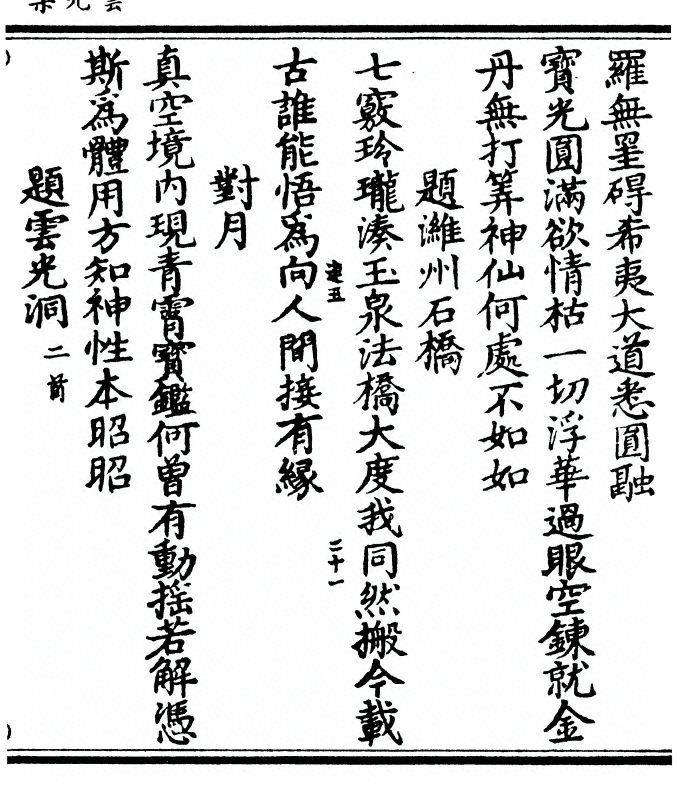 羅無罣碍希夷大道悉圓融
寶光圓滿欲情枯一切浮華過眼空鍊就金
丹無打筭神仙何處不如如
題濰州石橋
七竅玲瓏湊玉泉法橋大度我同然搬今載
古誰能悟爲向人間接有緣
二十一
對月
真空境内現青霄寶鑑何曾有動摇若解憑
斯爲體用方知神性本昭昭
題雲光洞二首